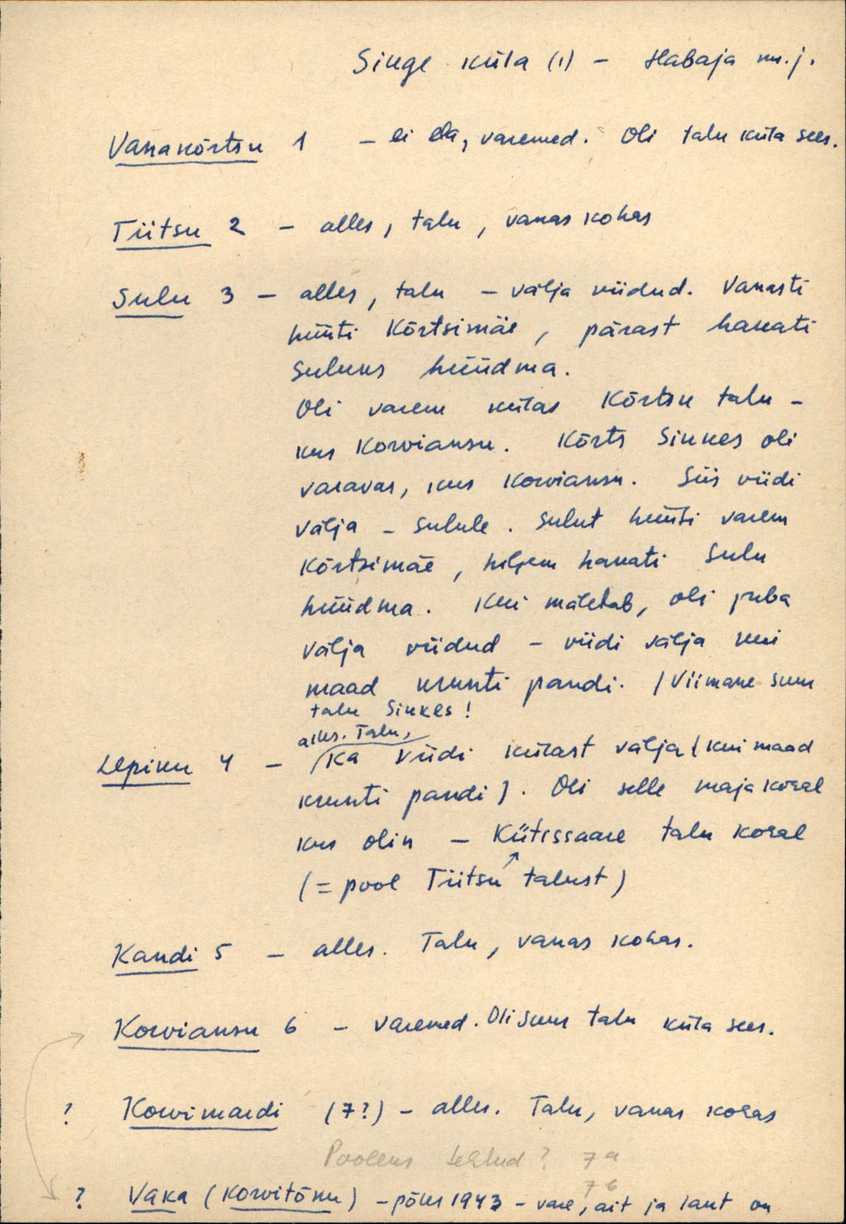 Singe küla (1) - Habaja nn.j.
Vanakõrtsu 1 - ei ela, varemed. Oli talu küla sees.
Tiitsu 2 - alles, talu, vanas kohas
Sulu 3 - alles, talu - välja viidud. Vanasti
hüüti Kõrtsimäe, pärast hakati
Suluks hüüdma.
Oli varem külas Kõrtsu talu -
kus Korviansu. Kõrts Sinkes oli
varavas, kus Korviansu. Siis viidi
välja - Sulule. Sulut hüüti varem
Kõrtsimäe, hiljem hakati Sulu
hüüdma. Kui mäletab, oli juba
välja viidud - viidi välja kui
maad krunti pandi. / Viimane suur
talu Sinkes!
alles. Talu,
Lepiku 4 - /Ka viidi külast välja (kui maad
krunti pandi). Oli selle maja koral
kus olin - Kütissaare talu koral
(= pool Tiitsu talust)
Kandi 5 - alles. Talu, vanas kohas.
Korviansu 6 - varemed. Oli suur talu küla sees.
? Korvimardi (7?) - alles. Talu, vanas kohas
Pooleks tehtud? 7a
7b
? Vaka (Korvitõnu) - põles 1943 - vare, ait ja laut on